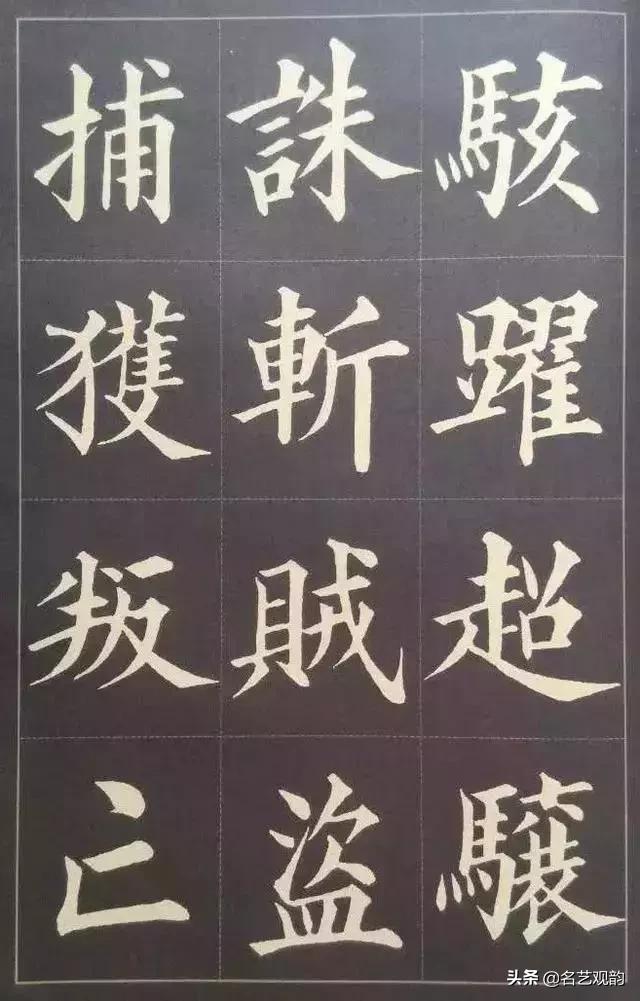 駭躍超驤
誅斬賊盜
捕獲叛亡
头条 @名艺观韵